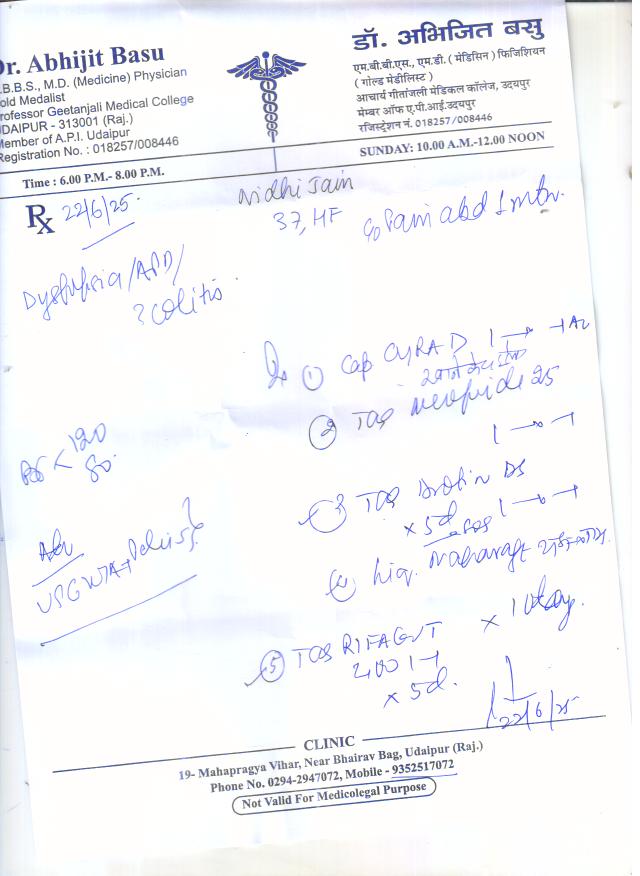 Dr. Abhijit Basu
.B.B.S., M.D. (Medicine) Physician
old Medalist
rofessor Geetanjali Medical College
DAIPUR - 313001 (Raj.)
Member of A.P.I. Udaipur
Registration No. : 018257/008446
डॉ. अभिजित बसु
एम.बी.बी.एस., एम.डी. ( मेडिसिन ) फिजिशियन
( गोल्ड मेडीलिस्ट )
आचार्य गीतांजली मेडिकल कॉलेज, उदयपुर
मेम्बर ऑफ ए.पी.आई.उदयपुर
रजिस्ट्रेशन नं. 018257/008446
Time : 6.00 P.M.- 8.00 P.M.
SUNDAY: 10.00 A.M.-12.00 NOON
Rx 22/6/25.
Nidhi Jain
37, HF
c/o Pain abd 1 mth.
Dyspepsia/APD/
? Colitis
① Cap CYRA D 1
② TAB 25
1
③ TAB Drotin DS
x 5d 1
④ Liq.
x 10day.
BP < 120
80.
Adv
USG W/A + Pelvis
⑤ TAB RIFAGUT
400 1-1
x 5d.
22/6/25
CLINIC
19- Mahapragya Vihar, Near Bhairav Bag, Udaipur (Raj.)
Phone No. 0294-2947072, Mobile - 9352517072
Not Valid For Medicolegal Purpose